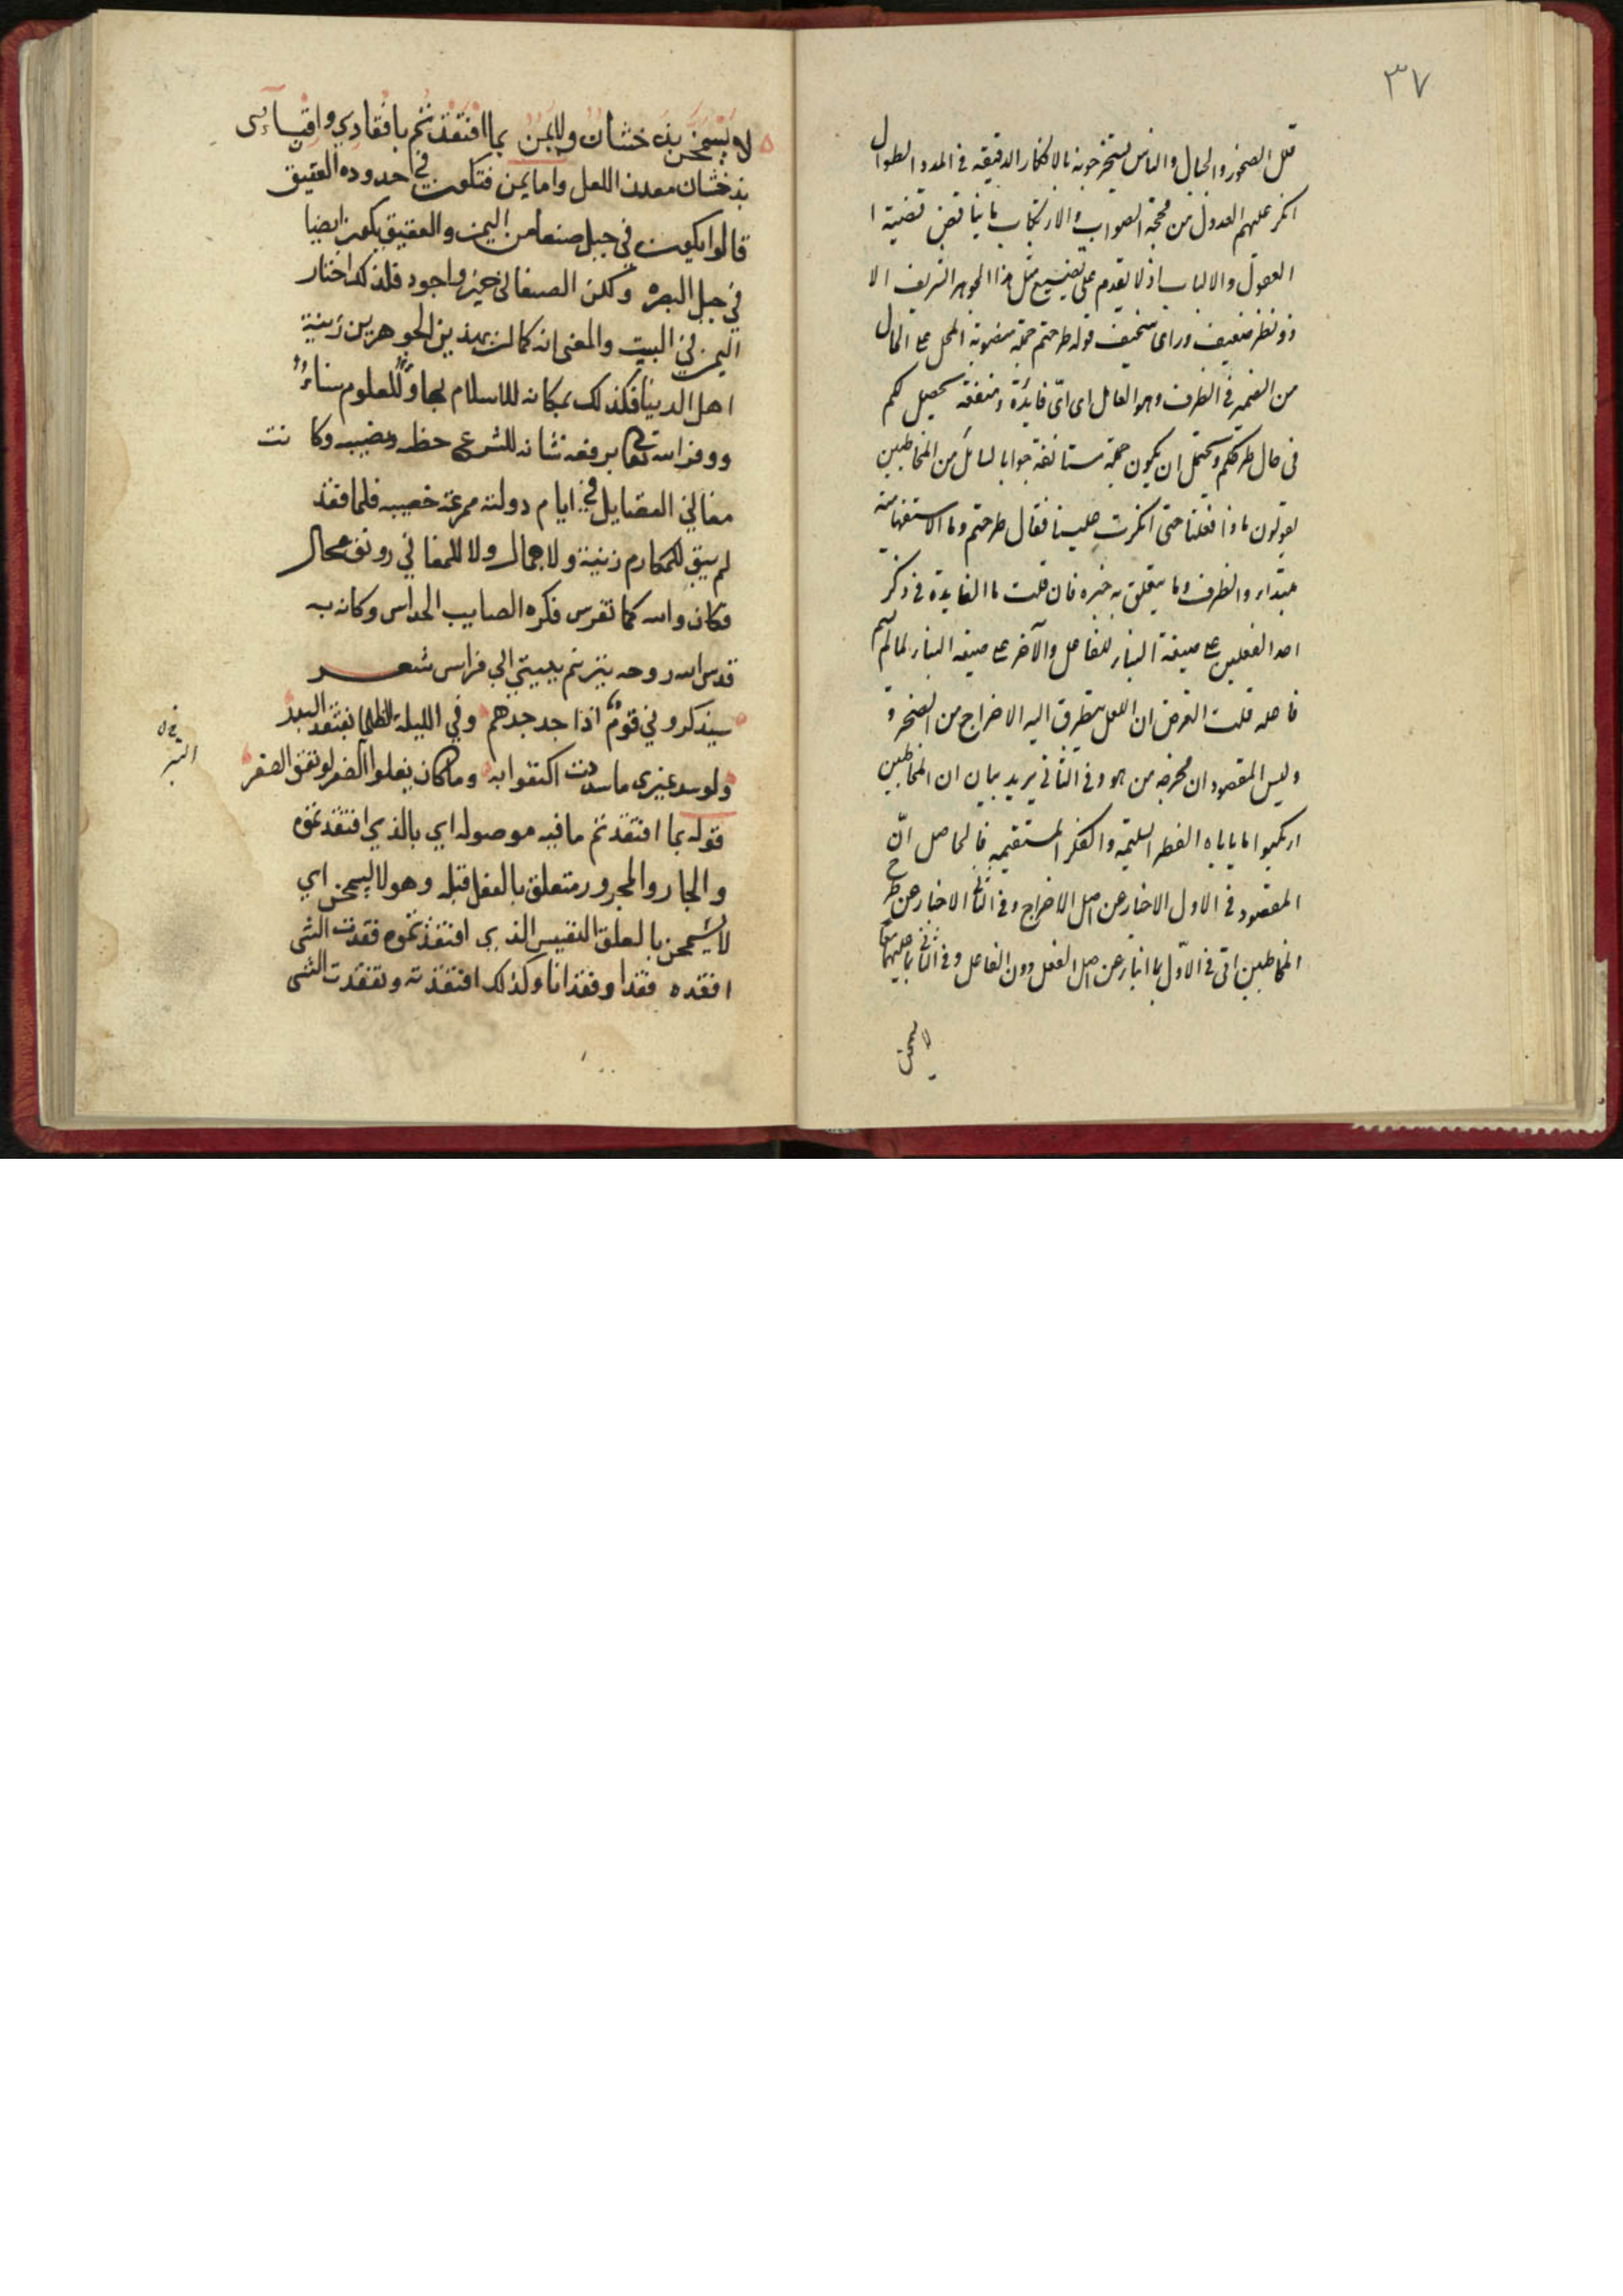 ٣٧
قلل الصخور والجبال والناس يستخرجونه بالافكار الدقيقه فى المدد الطوال
انكر عليهم العدول من محجة الصواب والارتكاب بما يناقض قضية ا
العقول والالباب اذ لا يقدم على تضييع مثل هذا الجوهر الشريف الا
ذو نظر ضعيف وراى سخيف قوله طرحتم جملة منصوبة المحل على الحال
من الضمير فى الظرف وهو العامل اى اىّ فايدة ومنفعة تحصل لكم
فى حال طرحكم ويحتمل ان يكون جملة مستانفة جوابا لسائل من المخاطبين
يقولون ماذا فعلنا حتى انكرت علينا فقال طرحتم وما الاستفهامية
مبتداء والظرف وما يتعلق به خبره فان قلت ما الفايدة فى ذكر
احد الفعلين على صيغة البناء للفاعل والآخر على صيغة البناء لما لم يسم
فاعله قلت الغرض ان اللعل يتطرق اليه الاخراج من الصخرة و
وليس المقصود ان مخرجه من هو وفى الثانى يريد بيان ان المخاطبين
ارتكبوا ما ياباه الفطر السليمة والفكر المستقيمه فالحاصل انّ
المقصود فى الاول الاخبار عن اصل الاخراج وفى الثانى الاخبار عن طرح
المخاطبين اتى فى الاوّل بما انبأ عن اصل الفعل دون الفاعل وفى الثانى بما عليهما معا
لا يسمحن
لا يسمحن بذخشان ولا يمن بما افتقدتم بافقادي واقيـاسى
بذخشان معدن اللعل واما يمن فتكون في حدوده العقيق
قالوا يكون في جبل صنعا من اليمن والعقيق يكون ايضا
في جبل البصره ولكن الصنعاني خير واجود فلذلك اختار
اليمن في البيت والمعنى انه كما ان بهذين الجوهرين زينة
اهل الدنيا فكذلك بمكانه للاسلام بهاءٌ وللعلوم سناءٌ
ووفر الله تعالى برفعة شانه للشرع حظه ونصيبه وكا نت
مغاني الفضايل في ايام دولته ممرعة خصيبه فلما فقد
لم يبق للمكارم زينة ولا جمال ولا للمغاني رونق محال
فكان والله كما تفرس فكره الصايب الحداس وكانه به
قدس الله روحه يترنم ببيتي ابي فراس شعــر
سيذكروني قومٌ اذا جد جدهم وفي الليلة الظلماء يفتقد البدر
ولو سد غيرى ما سددت اكتفوا به وما كان يغلوا الضر لو نفق الصفر
التبر
قوله بما افتقدتم ما فيه موصوله اي بالذي افتقدتموه
والجار والمجرور متعلق بالفعل قبله وهو لا يسمحن اي
لا يسمحن بالعلق النفيس الذي افتقدتموه فقدت الشى
افقده فقدا وفقدانا وكذلك افتقدته وتفقدت الشى